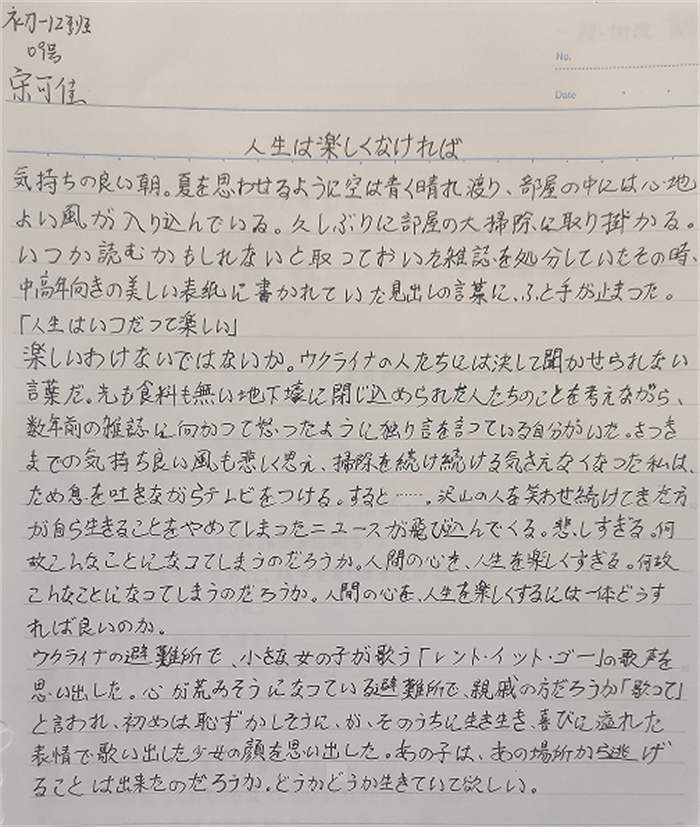 初一12班
09号
宋可佳
No.
Date
人生は楽しくなければ
気持ちの良い朝。夏を思わせるように空は青く晴れ渡り、部屋の中には心地
よい風が入り込んでいる。久しぶりに部屋の大掃除に取り掛かる。
いつか読むかもしれないと取っておいた雑誌を処分していたその時、
中高年向きの美しい表紙に書かれていた見出しの言葉に、ふと手が止まった。
「人生はいつだって楽しい」
楽しいわけないではないか。ウクライナの人たちには決して聞かせられない
言葉だ。光も食料も無い地下壕に閉じ込められた人たちのことを考えながら、
数年前の雑誌に向かって怒ったように独り言を言っている自分がいた。さっき
までの気持ち良い風も悲しく思え、掃除を続け続ける気さえなくなった私は、
ため息を吐きながらテレビをつける。すると……。沢山の人を笑わせ続けてきた方
が自ら生きることをやめてしまったニュースが飛び込んでくる。悲しすぎる。何
故こんなことになってしまうのだろうか。人間の心を、人生を楽しくすぎる。何故
こんなことになってしまうのだろうか。人間の心を、人生を楽しくするには一体どうす
れば良いのか。
ウクライナの避難所で、小さな女の子が歌う「レント・イット・ゴー」の歌声を
思い出した。心が荒みそうになっている避難所で、親戚の方だろうか「歌って」
と言われ、初めは恥ずかしそうに、が、そのうちに生き生き、喜びに溢れた
表情で歌い出した少女の顔を思い出した。あの子は、あの場所から逃げ
ることは出来たのだろうか。どうかどうか生きていて欲しい。